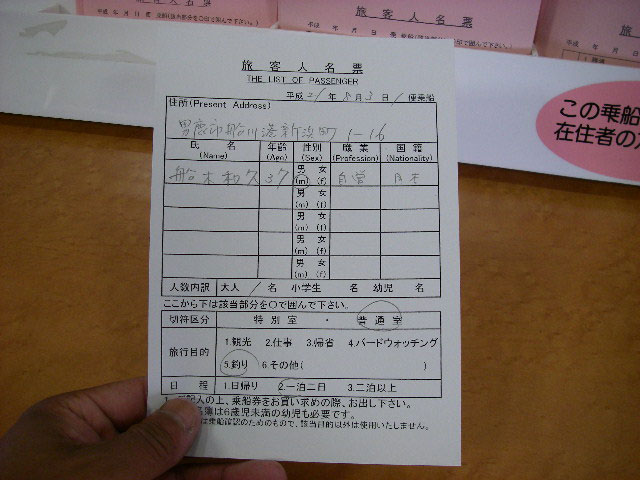 旅客人名票
THE LIST OF PASSENGER
平成 21 年 8 月 3 日 / 便乗船
住所(Present Address)
男鹿市船川港新浜町 1-16
氏名 年齢 性別 職業 国籍
(Name) (Age) (Sex) (Profession) (Nationality)
船木和久 37 男 女 自営 日本
(m) (f)
男 女
(m) (f)
男 女
(m) (f)
男 女
(m) (f)
男 女
(m) (f)
人数内訳 大人 / 名 小学生 名 幼児 名
ここから下は該当部分を○で囲んで下さい。
切符区分 特別室 ・ 普通室
旅行目的 1.観光 2.仕事 3.帰省 4.バードウォッチング
5.釣り 6.その他( )
日程 1.日帰り 2.一泊二日 3.二泊以上
の上、乗船券をお買い求めの際、お出し下さい。
簿は6歳児未満の幼児も必要です。
は乗船確認のためのもので、該当目的以外は使用いたしません。
この乗船
在住者の
旅客人名票